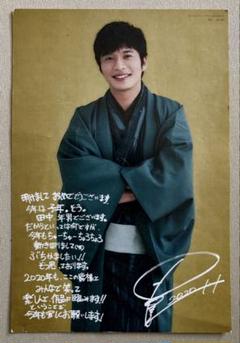 明けまして おめでとうございます
今年は 子年。そう。
田中 年男でございます。
だからといっては何ですが、
今年もちゅーちゅーちょろちょろ
動き回りまして
ぶちかましたい!!
と思っております。
2020年も、ここの皆様と
みんなで笑って
楽しい 作品が臨みます!!
ということで
今年も宜しくお願いします!
2020.1.1